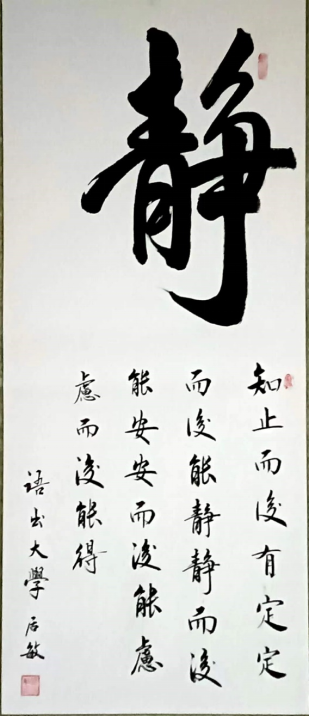 靜
知止而後有定定
而後能靜靜而後
能安安而後能慮
慮而後能得
語出大學 石敏